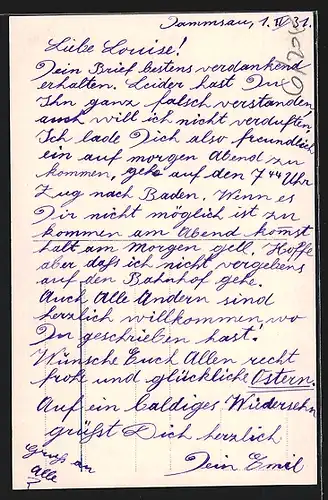 Dammsau, 1. II/31.
Liebe Louise!
Dein Brief bestens verdankend
erhalten. Leider hast Du
Ihn ganz falsch verstanden,
auch will ich nicht verduften.
Ich lade Dich also freundlich
ein auf morgen Abend zu
kommen, gehe auf den 7 44 Uhr
Zug nach Baden. Wenn es
Dir nicht möglich ist zu
kommen am Abend komst
halt am Morgen gell. Hoffe
aber daß ich nicht vergebens
auf den Bahnhof gehe.
Auch Alle Andern sind
herzlich willkommen, wo
Du geschrieben hast!
Wünsche Euch Allen recht
frohe und glückliche Ostern.
Auf ein baldiges Wiedersehn
grüßt Dich herzlich
Dein Emil
Gruss an
Alle